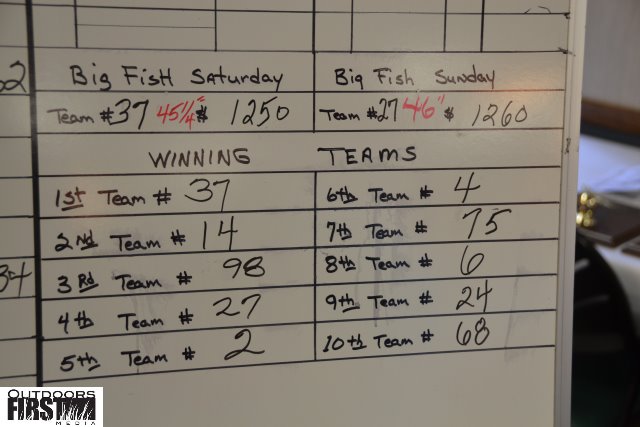 Big Fish Saturday Big Fish Sunday
Team #37 45 1/4" $ 1250 Team #27 46" $ 1260
WINNING TEAMS
1st Team # 37 6th Team # 4
2nd Team # 14 7th Team # 75
3Rd Team # 98 8th Team # 6
34
4th Team # 27 9th Team # 24
5th Team # 2 10th Team # 68
OUTDOORS
FIRST
MEDIA